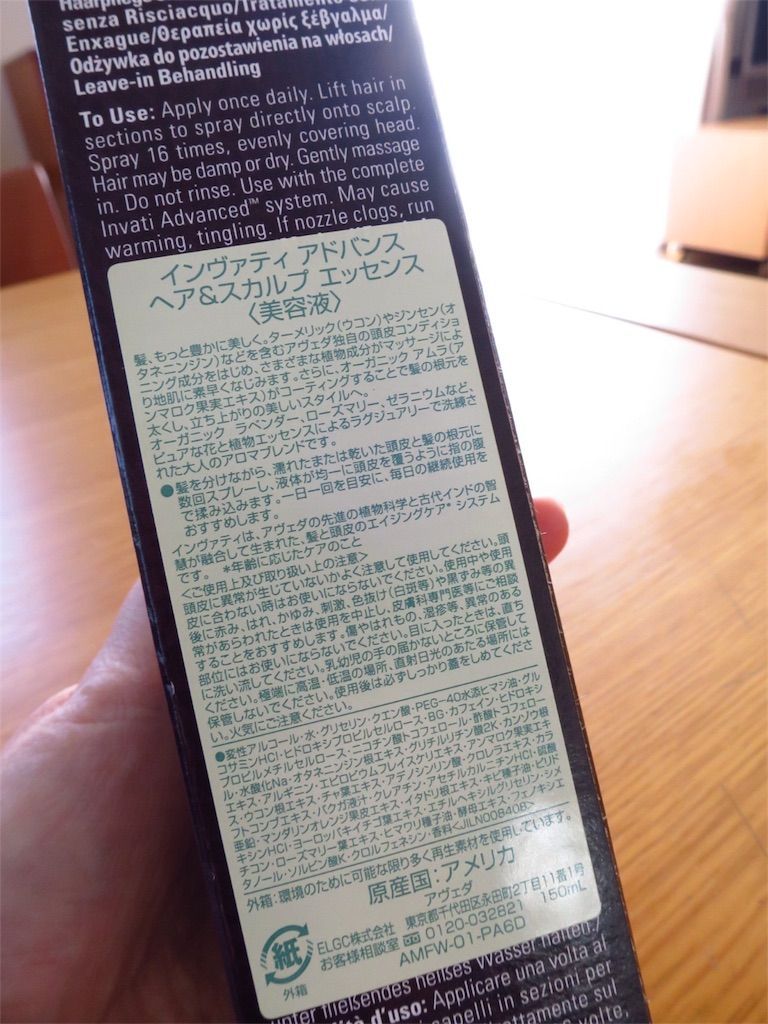 Haarpflege
senza Risciacquo/Tratamiento
Enxague/Θεραπεία χωρίς ξέβγαλμα/
Odżywka do pozostawienia na włosach/
Leave-in Behandling
To Use: Apply once daily. Lift hair in
sections to spray directly onto scalp.
Spray 16 times, evenly covering head.
Hair may be damp or dry. Gently massage
in. Do not rinse. Use with the complete
Invati Advanced™ system. May cause
warming, tingling. If nozzle clogs, run
インヴァティ アドバンス
ヘア&スカルプ エッセンス
〈美容液〉
髪、もっと豊かに美しく。ターメリック(ウコン)やジンセン(オ
タネニンジン)などを含むアヴェダ独自の頭皮コンディショ
ニング成分をはじめ、さまざまな植物成分がマッサージによ
り地肌に素早くなじみます。さらに、オーガニック アムラ(ア
ンマロク果実エキス)がコーティングすることで髪の根元を
太くし、立ち上がりの美しいスタイルへ。
オーガニック ラベンダー、ローズマリー、ゼラニウムなど、
ピュアな花と植物エッセンスによるラグジュアリーで洗練さ
れた大人のアロマブレンドです。
●髪を分けながら、濡れたまたは乾いた頭皮と髪の根元に
数回スプレーし、液体が均一に頭皮を覆うように指の腹
で揉み込みます。一日一回を目安に、毎日の継続使用を
おすすめします。
インヴァティは、アヴェダの先進の植物科学と古代インドの智
慧が融合して生まれた、髪と頭皮のエイジングケア*システム
です。 *年齢に応じたケアのこと
<ご使用上及び取り扱い上の注意>
頭皮に異常が生じていないかよく注意して使用してください。頭
皮に合わない時はお使いにならないでください。使用中や使用
後に赤み、はれ、かゆみ、刺激、色抜け(白斑等)や黒ずみ等の異
常があらわれたときは使用を中止し、皮膚科専門医等にご相談
することをおすすめします。傷やはれもの、湿疹等、異常のある
部位にはお使いにならないでください。目に入ったときは、直ち
に洗い流してください。乳幼児の手の届かないところに保管して
ください。極端に高温・低温の場所、直射日光のあたる場所には
保管しないでください。使用後は必ずしっかり蓋をしめてくださ
い。火気にご注意ください。
●変性アルコール・水・グリセリン・クエン酸・PEG-40水添ヒマシ油・グル
コサミンHCl・ヒドロキシプロピルセルロース・BG・カフェイン・ヒドロキシ
プロピルメチルセルロース・ニコチン酸トコフェロール・酢酸トコフェロー
ル・水酸化Na・オタネニンジン根エキス・グリチルリチン酸2K・カンゾウ根
エキス・アルギニン・エピロビウムフレイスケリエキス・アンマロク果実エキ
ス・ウコン根エキス・チャ葉エキス・アデノシンリン酸・クロレラエキス・カラ
フトコンブエキス・バクガ液汁・クレアチン・アセチルカルニチンHCl・硫酸
亜鉛・マンダリンオレンジ果皮エキス・イタドリ根エキス・キビ種子油・ピリド
キシンHCl・ヨーロッパキイチゴ葉エキス・エチルヘキシルグリセリン・シメ
チコン・ローズマリー葉エキス・ヒマワリ種子油・酵母エキス・フェノキシエ
タノール・ソルビン酸K・クロルフェネシン・香料<JILN00840B>
外箱:環境のために可能な限り多く再生素材を使用しています。
原産国:アメリカ
アヴェダ
ELGC株式会社 東京都千代田区永田町2丁目11番1号
お客様相談室 0120-032821 150mL
AMFW-01-PA6D
紙
外箱
unter fließendes heißes Wasser halten.
d'uso: Applicare una volta al
capelli in sezioni per
direttamente sul
volte,